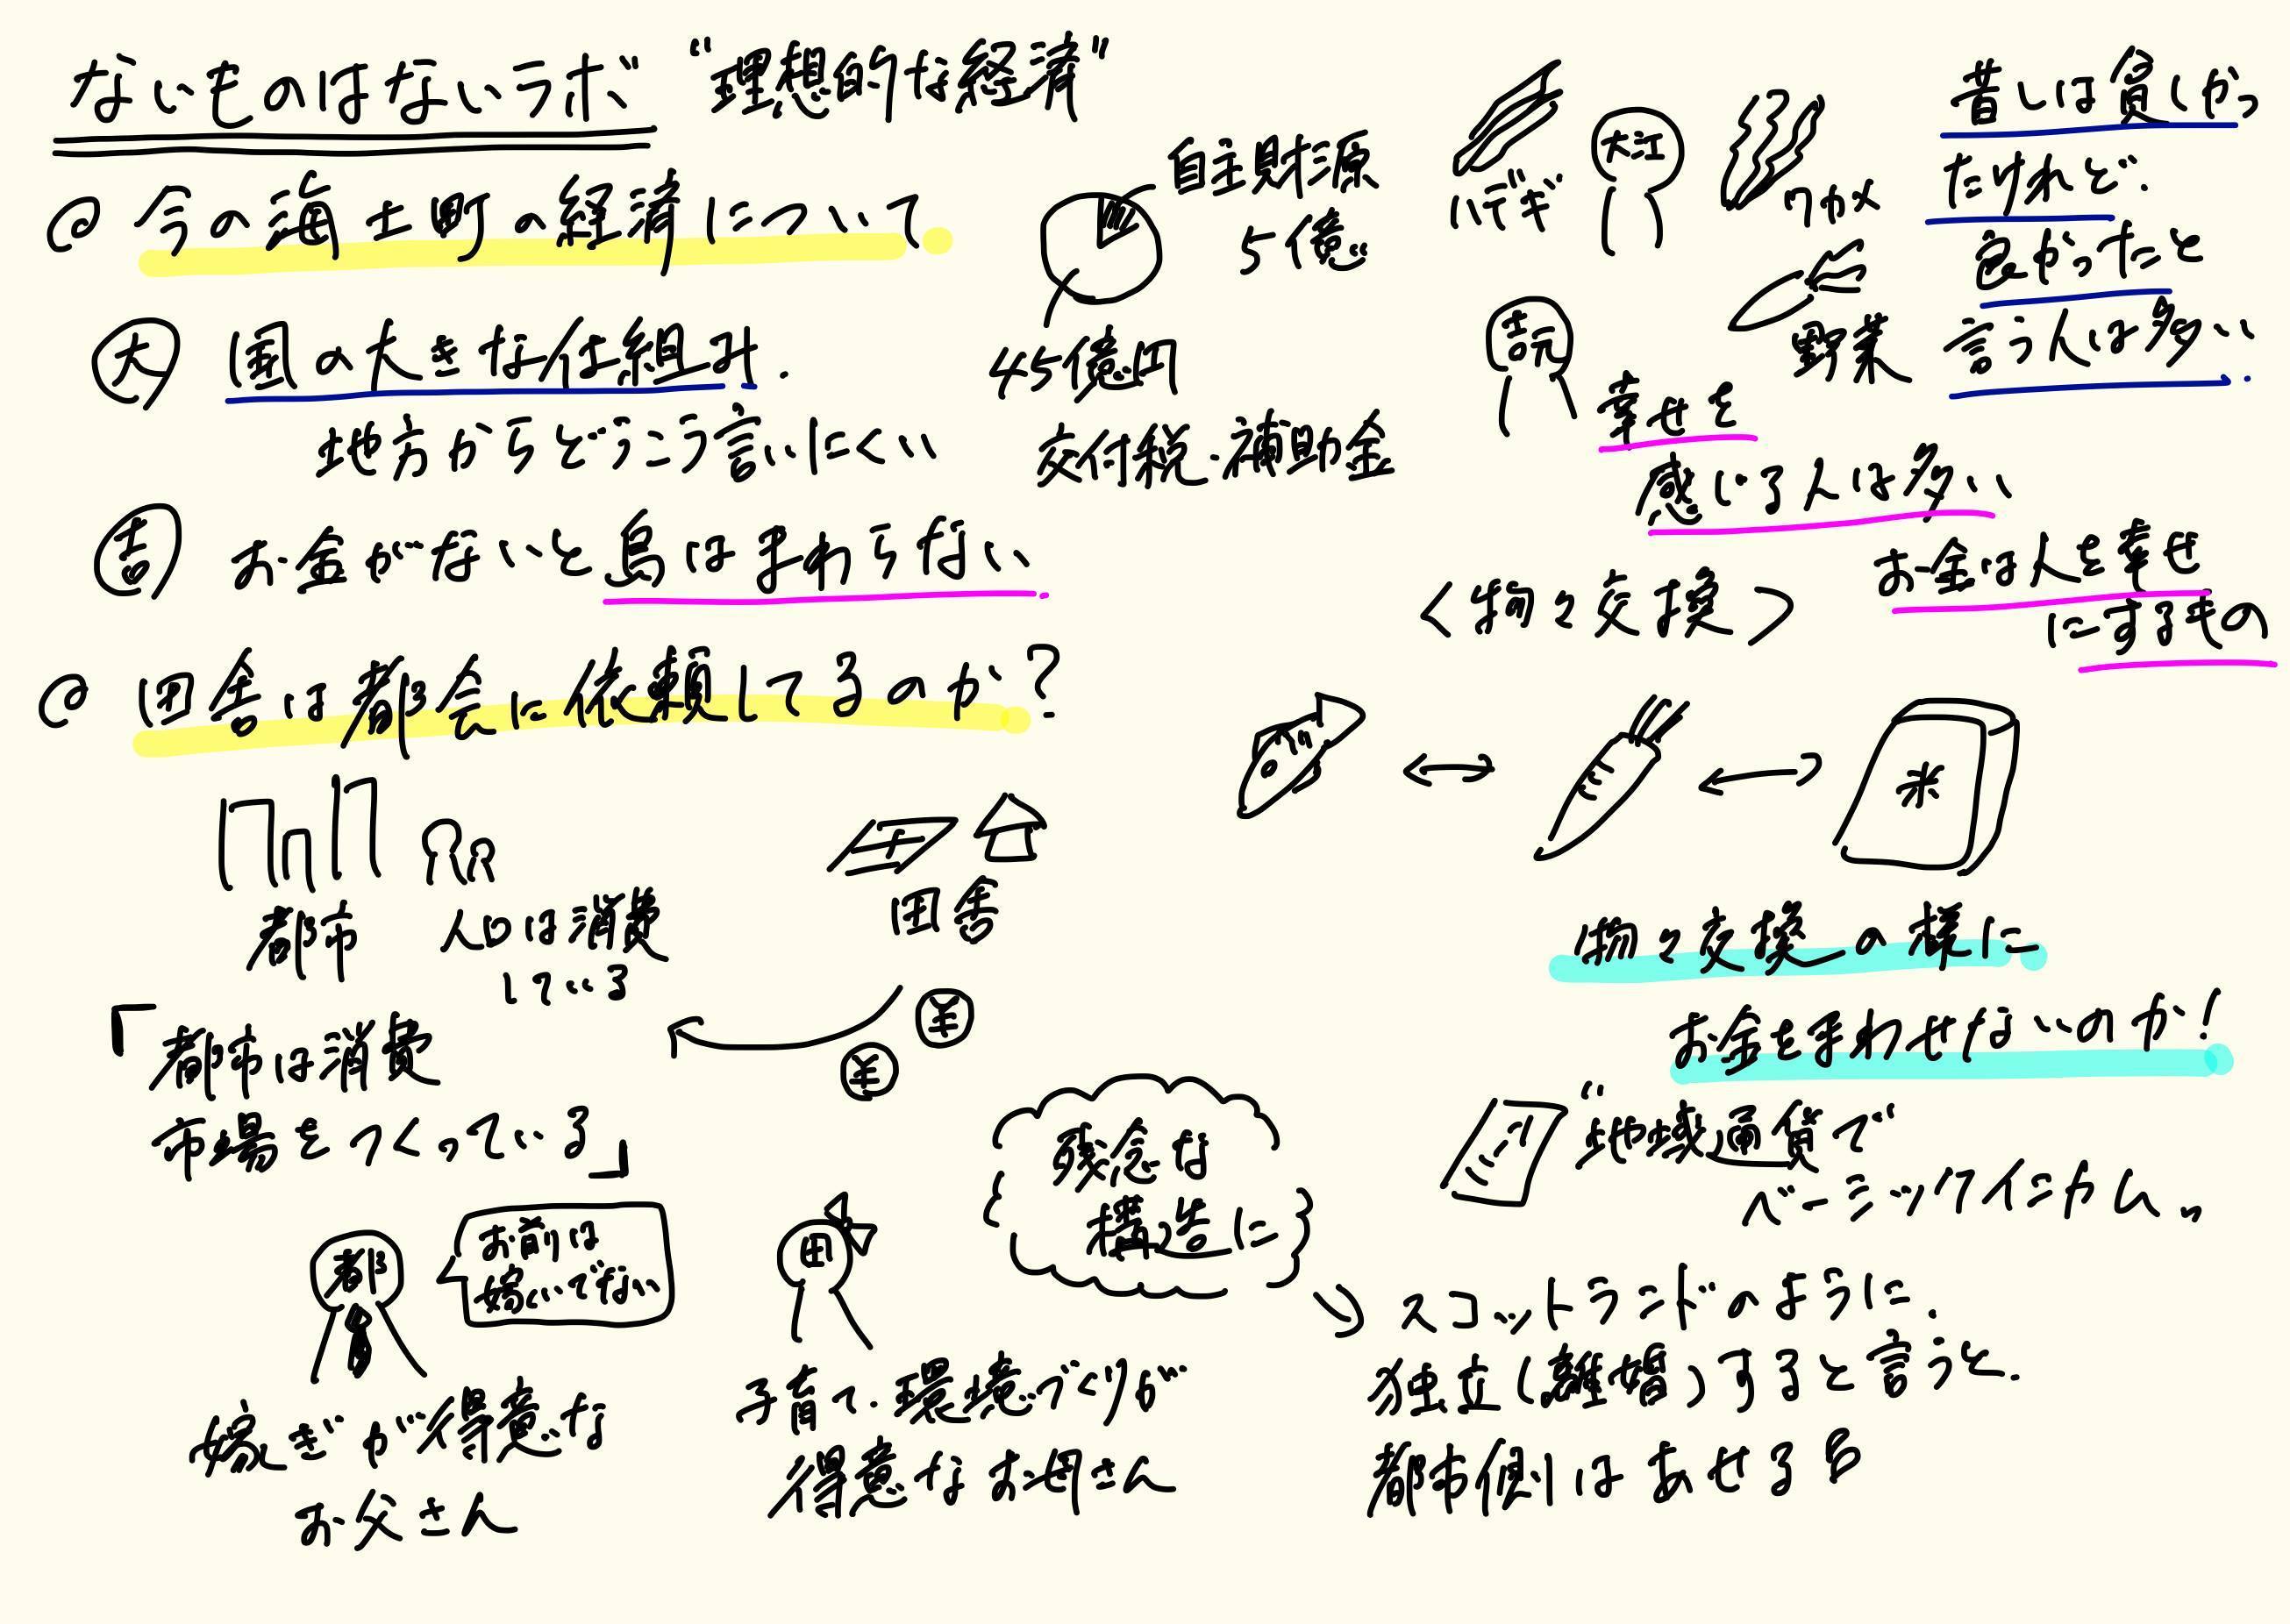 ないものはないラボ "理想的な経済"
@ 今の海士町の経済について
大 国の大きな仕組み.
地方からどうこう言いにくい
吉 お金がないと島はまわらない
自主財源
5億
45億円
交付税・補助金
@ 田舎は都会に依頼してるのか?
都市
人口は消費
している
田舎
¥
¥
「都市は消費
市場をつくっている」
都
お前は
嫁いでない
嫁ぎが得意な
お父さん
田
子育て・環境づくりが
得意なお母さん
残念な
構造に
ハデギ
大江
ワカメ
野菜
昔しは貧しかっ
たけれど.
良かったと
言う人は多い.
吉元
幸せを
感じる人は多い
お金は人を幸せ
にするもの
<物々交換>
米
物々交換の様に
お金をまわせないのか!
"地域通貨で
ベーシックインカム"
スコットランドのように.
独立(離婚)すると言うと.
都市側はあせる